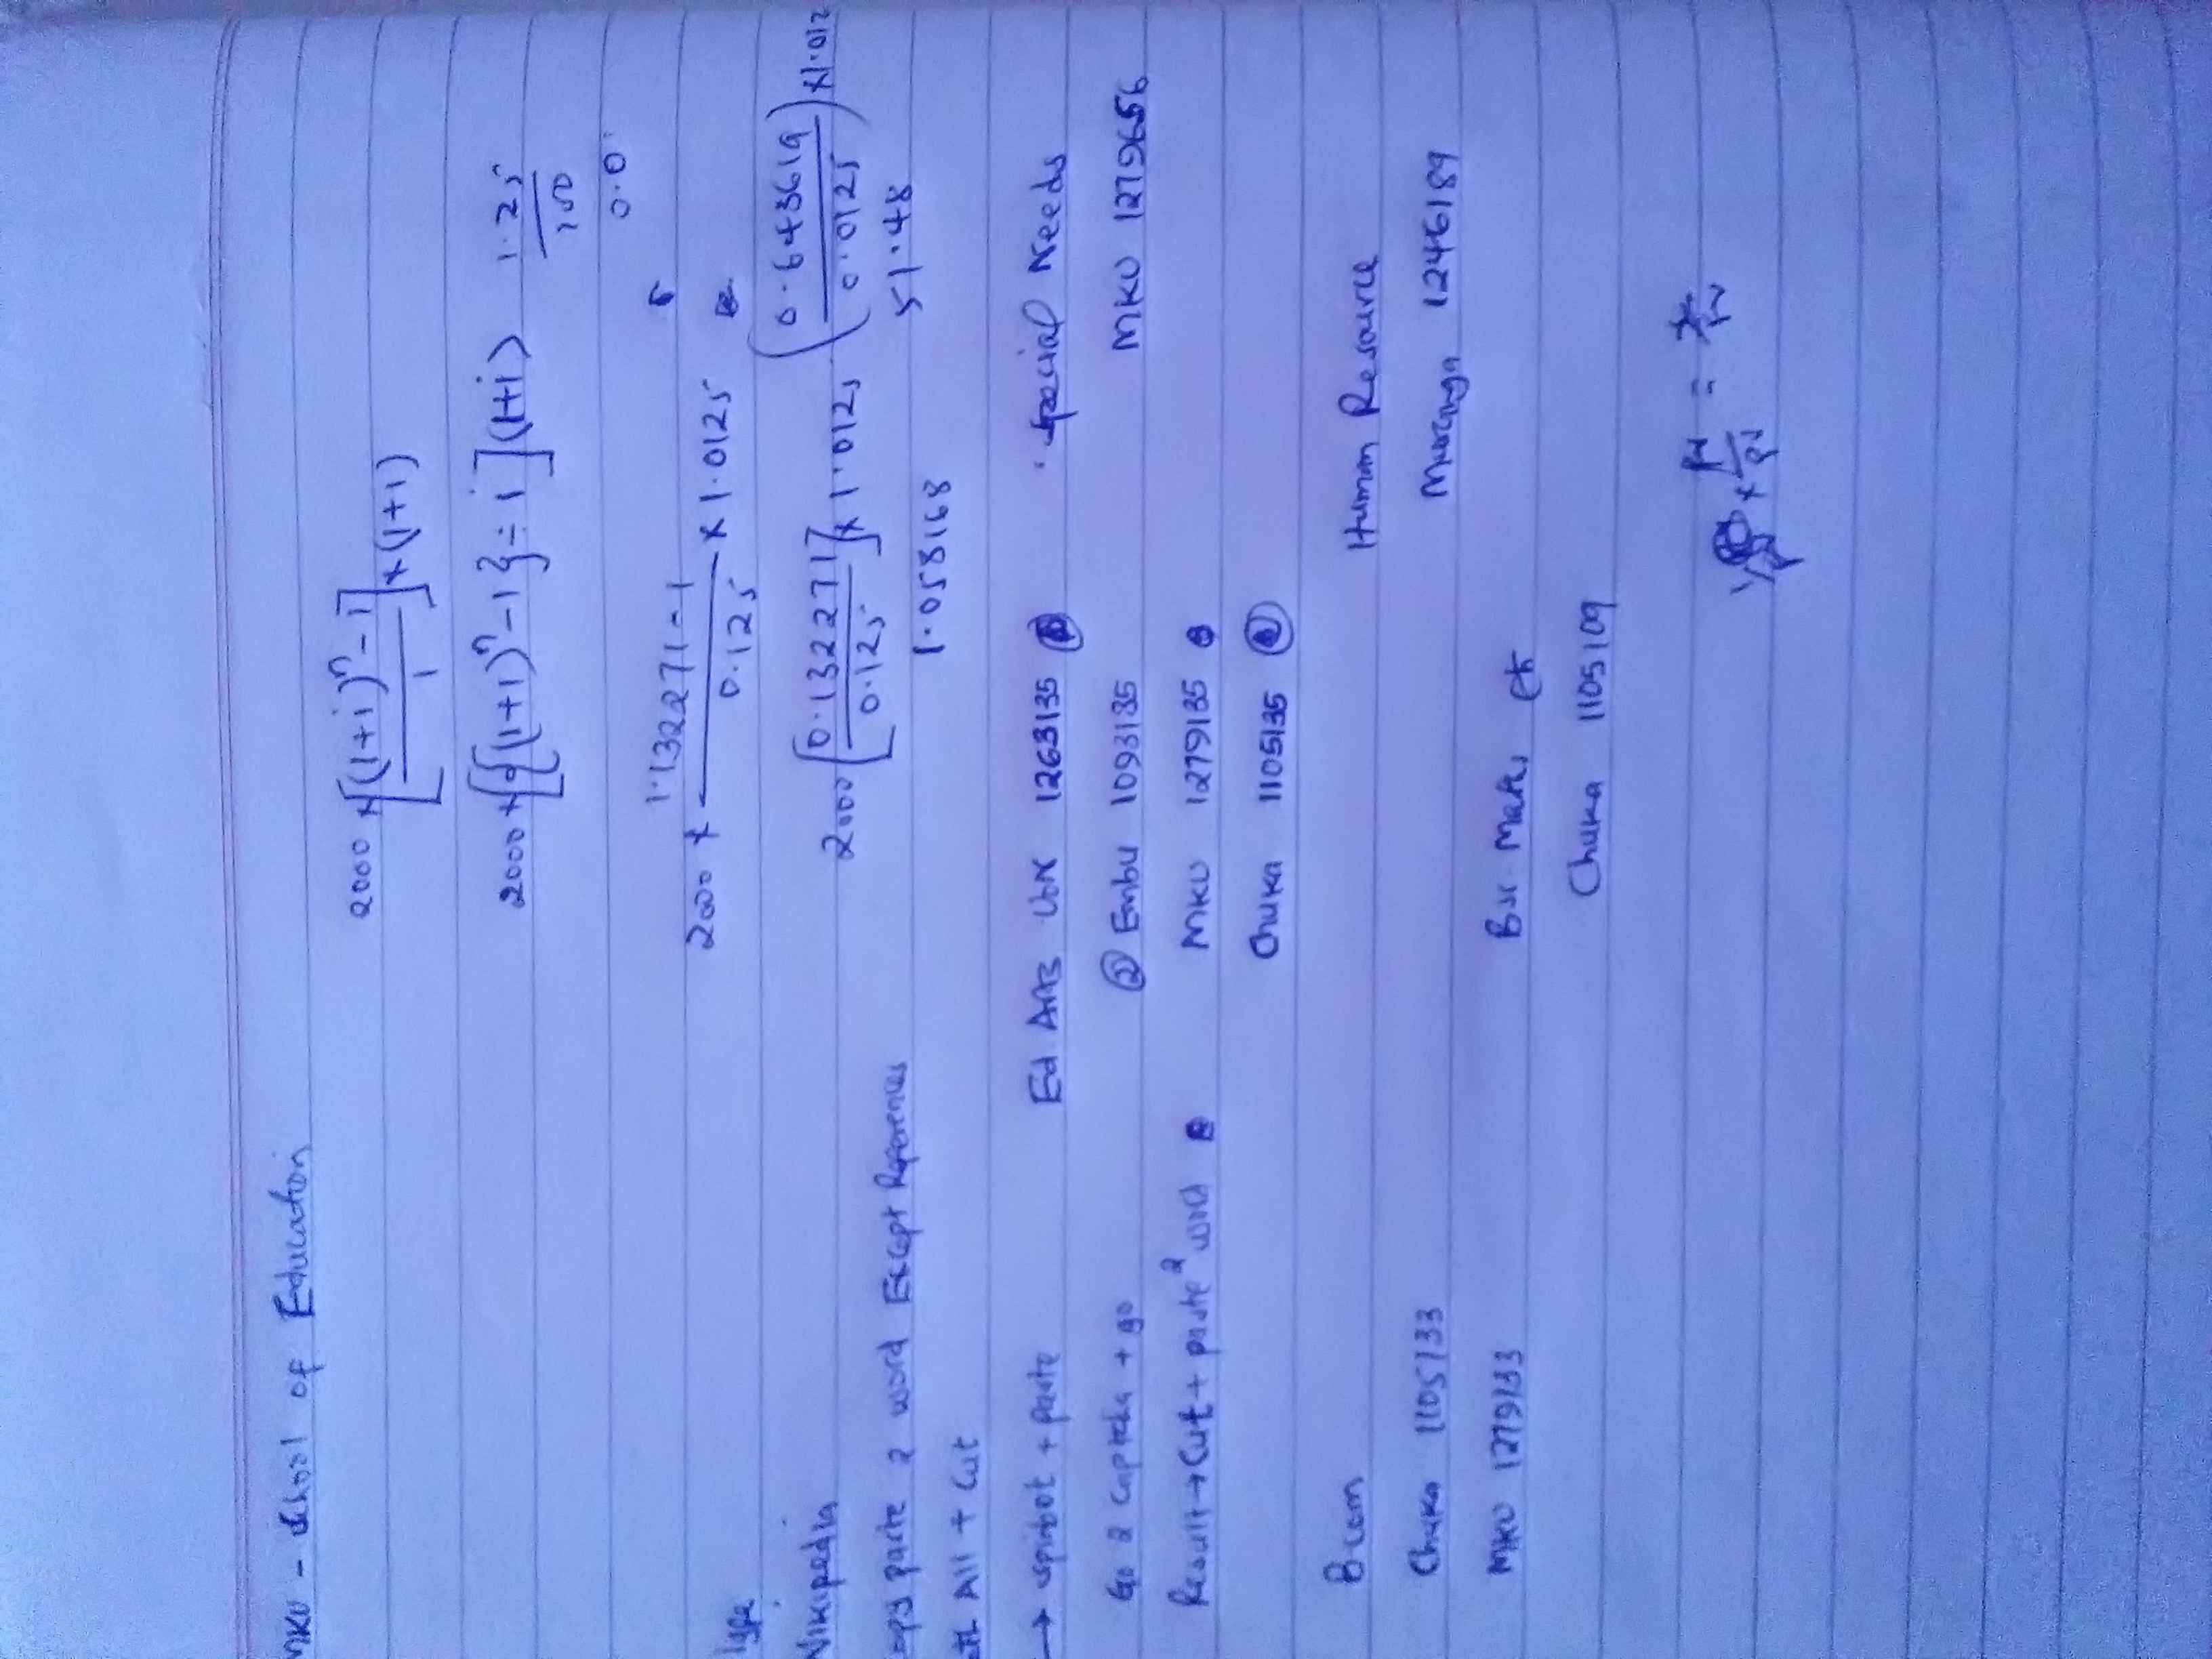 MKU - School of Education
2000 × [(1+i)ⁿ - 1 / 1] × (1+1)
2000 × [{(1+1)ⁿ - 1} ÷ i] (1+i)
1.25 / 100
0.0
2000 × 1.132271 - 1 / 0.125 × 1.0125
2000 [0.132271 / 0.125] × 1.0125
(0.643619 / 0.0125) × 1.012
1.058168
51.48
Wikipedia
copy paste 2 word Except References
All + Cut
→ spinbot + paste
Go 2 captcha + go
Result → Cut + paste 2 word
Ed Arts UoN 1263135
② Embu 1093135
MKU 1279135
Chuka 1105135
Special Needs
MKU 1279656
Bcom
Chuka 1105133
MKU 1279133
Human Resource
Muranga 1246189
Bsc Maths
Chuka 1105109